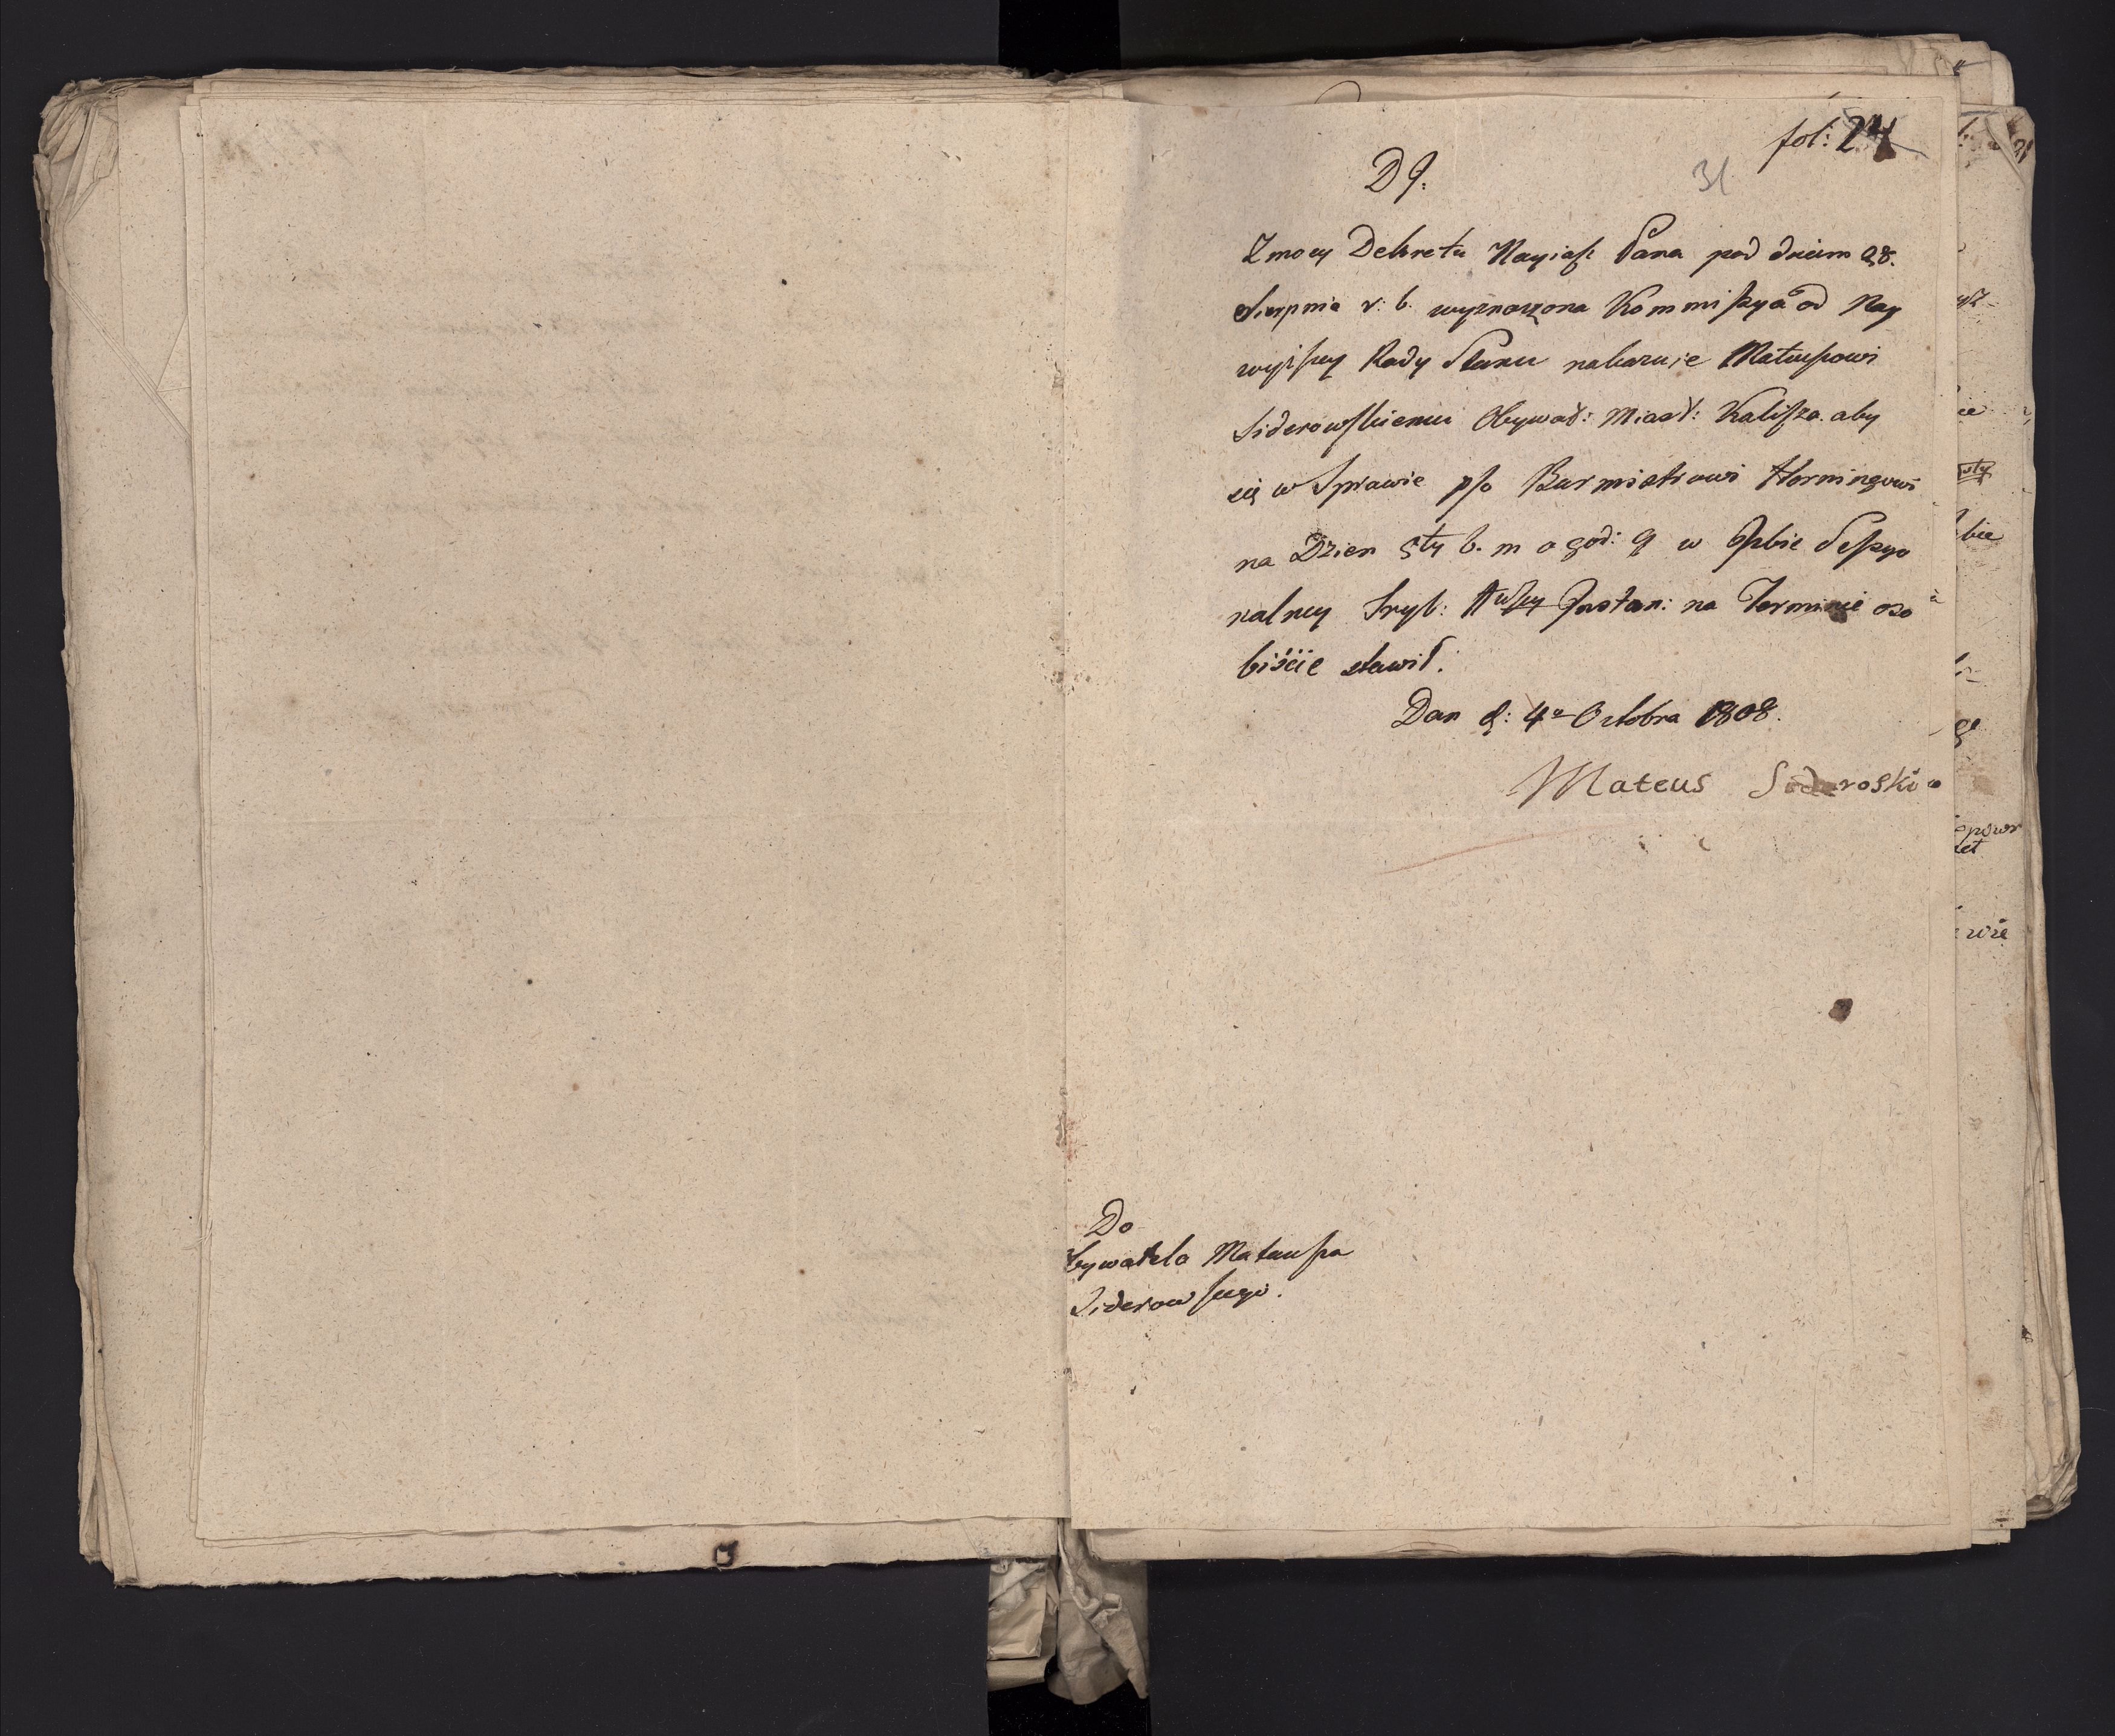 fol: 24
31
D 9:
Z mocy Dekretu Nayiaś: Pana pod dniem 28.
Sierpnia r: b. wyznaczona Kommissya od Nay
wyższey Rady Stanu nakazuie Mateuszowi
Siderowskiemu Obywat: Miast: Kalisza. aby
się w Sprawie p/o Burmistrowi Horningowi
na Dzien 5ty b. m o god: 9 w Izbie Sessyo
nalney Tryb: Instan: na Terminie oso
biście stawił.
Dan d: 4a Octobra 1808.
Mateus Sideroski
Do
bywatela Mateusza
Siderowskiego.